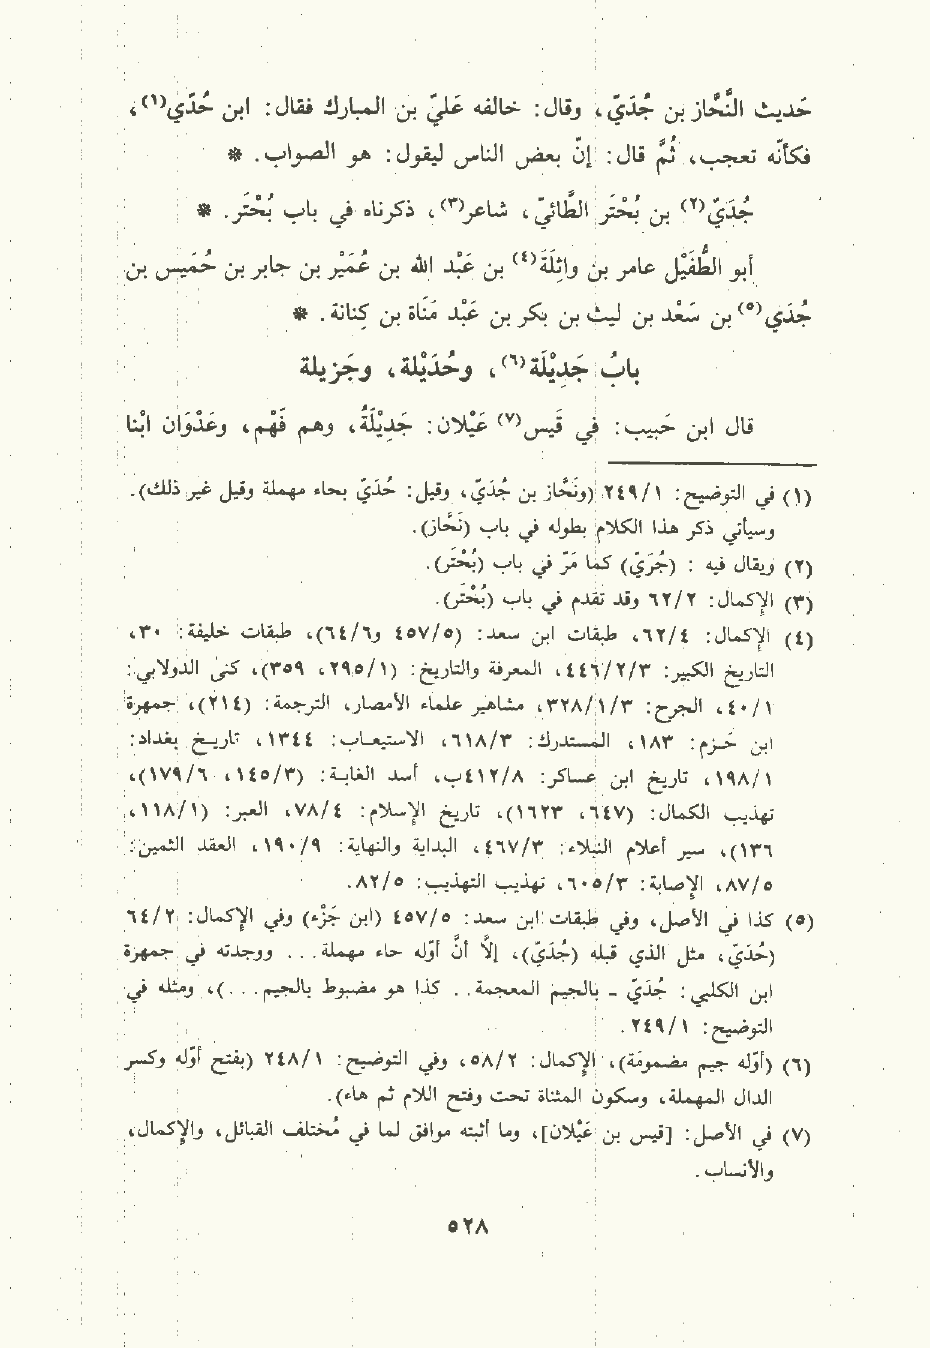 حَديث النَّحَّاز بن جُدَيّ، وقال: خالفه عَليّ بن المبارك فقال: ابن حُدّي(١)،
فكأنّه تعجب، ثُمَّ قال: إنّ بعض الناس ليقول: هو الصواب. *
جُدَيّ(٢) بن بُحْتَر الطَّائيّ، شاعر(٣)، ذكرناه في باب بُحْتَر. *
أبو الطُّفَيْل عامر بن واثِلَة(٤) بن عَبْد الله بن عُمَيْر بن جابر بن حُمَيس بن
جُدَي(٥) بن سَعْد بن ليث بن بكر بن عَبْد مَنَاة بن كِنانة. *
بابُ جَدِيْلَة(٦)، وحُدَيْلة، وجَزيلة
قال ابن حَبيب: في قَيس(٧) عَيْلان: جَدِيْلَةُ، وهم فَهْم، وعَدْوَان ابْنا
(١) في التوضيح: ٢٤٩/١ (ونَحَّاز بن جُدَيّ، وقيل: حُدَيّ بحاء مهملة وقيل غير ذلك).
وسيأتي ذكر هذا الكلام بطوله في باب (نَحَّاز).
(٢) ويقال فيه : (جُرَيّ) كما مَرّ في باب (بُحْتَر).
(٣) الإكمال: ٦٢/٢ وقد تقدم في باب (بُحْتَر).
(٤) الإكمال: ٦٢/٤، طبقات ابن سعد: (٤٥٧/٥ و٦٤/٦)، طبقات خليفة: ٣٠،
التاريخ الكبير: ٤٤٦/٢/٣، المعرفة والتاريخ: (٢٩٥/١، ٣٥٩)، كنى الدولابي:
٤٠/١، الجرح: ٣٢٨/١/٣، مشاهير علماء الأمصار، الترجمة: (٢١٤)، جمهرة
ابن حَزم: ١٨٣، المستدرك: ٦١٨/٣، الاستيعاب: ١٣٤٤، تاريخ بغداد:
١٩٨/١، تاريخ ابن عساكر: ٤١٢/٨ب، أسد الغابة: (١٤٥/٣، ١٧٩/٦)،
تهذيب الكمال: (٦٤٧، ١٦٢٣)، تاريخ الإسلام: ٧٨/٤، العبر: (١١٨/١،
١٣٦)، سير أعلام النبلاء: ٤٦٧/٣، البداية والنهاية: ١٩٠/٩، العقد الثمين:
٨٧/٥، الإصابة: ٦٠٥/٣، تهذيب التهذيب: ٨٢/٥.
(٥) كذا في الأصل، وفي طبقات ابن سعد: ٤٥٧/٥ (ابن جَزْء) وفي الإكمال: ٦٤/٢
(حُدَيّ، مثل الذي قبله (جُدَيّ)، إلَّا أنَّ أوّله حاء مهملة... ووجدته في جمهرة
ابن الكلبي: جُدَيّ - بالجيم المعجمة.. كذا هو مضبوط بالجيم...)، ومثله في
التوضيح: ٢٤٩/١.
(٦) (أوّله جيم مضمومة)، الإكمال: ٥٨/٢، وفي التوضيح: ٢٤٨/١ (بفتح أوّله وكسر
الدال المهملة، وسكون المثناة تحت وفتح اللام ثم هاء).
(٧) في الأصل: [قيس بن عَيْلان]، وما أثبته موافق لما في مُختلف القبائل، والإكمال،
والأنساب.
٥٢٨